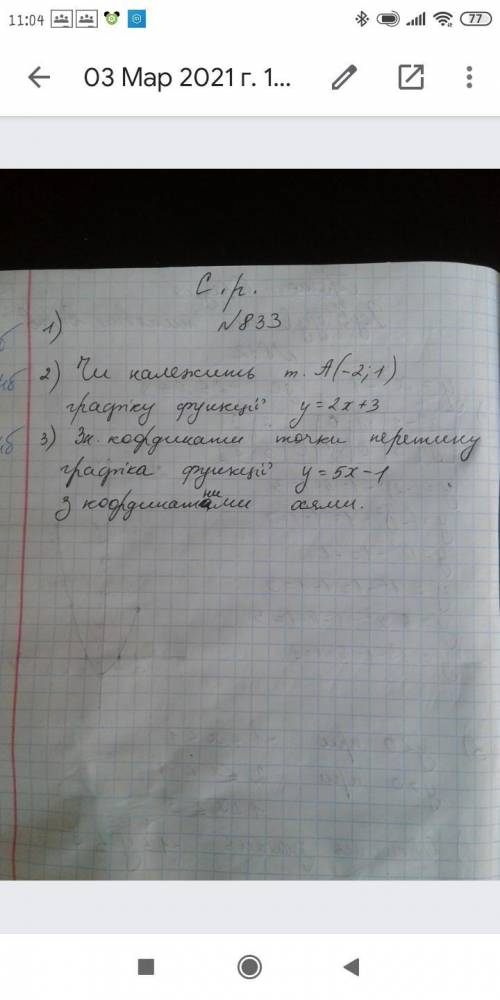 11:04
77
03 Мар 2021 г. 1...
С.р.
1) №833
2) Чи належить т. А(-2;1)
графіку функції y=2x+3
3) Зн. координати точки перетину
графіка функції y=5x-1
з координатними осями.